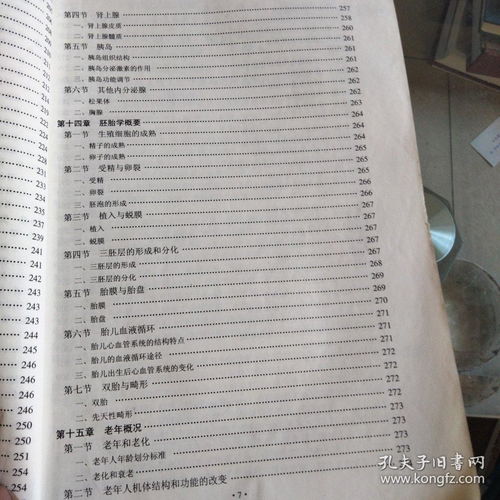 第四节 肾上腺 257
一、肾上腺皮质 258
二、肾上腺髓质 260
第五节 胰岛 261
一、胰岛组织结构 261
二、胰岛分泌激素的作用 261
三、胰岛功能调节 262
第六节 其他内分泌腺 262
一、松果体 262
二、胸腺 263
第十四章 胚胎学概要 264
第一节 生殖细胞的成熟 264
一、精子的成熟 264
二、卵子的成熟 264
第二节 受精与卵裂 265
一、受精 265
二、卵裂 265
三、胚泡的形成 266
第三节 植入与蜕膜 267
一、植入 267
二、蜕膜 267
第四节 三胚层的形成和分化 267
一、三胚层的形成 267
二、三胚层的分化 268
第五节 胎膜与胎盘 269
一、胎膜 269
二、胎盘 270
第六节 胎儿血液循环 271
一、胎儿心血管系统的结构特点 271
二、胎儿的血液循环途径 271
三、胎儿出生后心血管系统的变化 272
第七节 双胎与畸形 272
一、双胎 272
二、先天性畸形 272
第十五章 老年概况 273
第一节 老年和老化 273
一、老年人年龄划分标准 273
二、老化和衰老 273
第二节 老年人机体结构和功能的改变
·7·
孔夫子旧书网